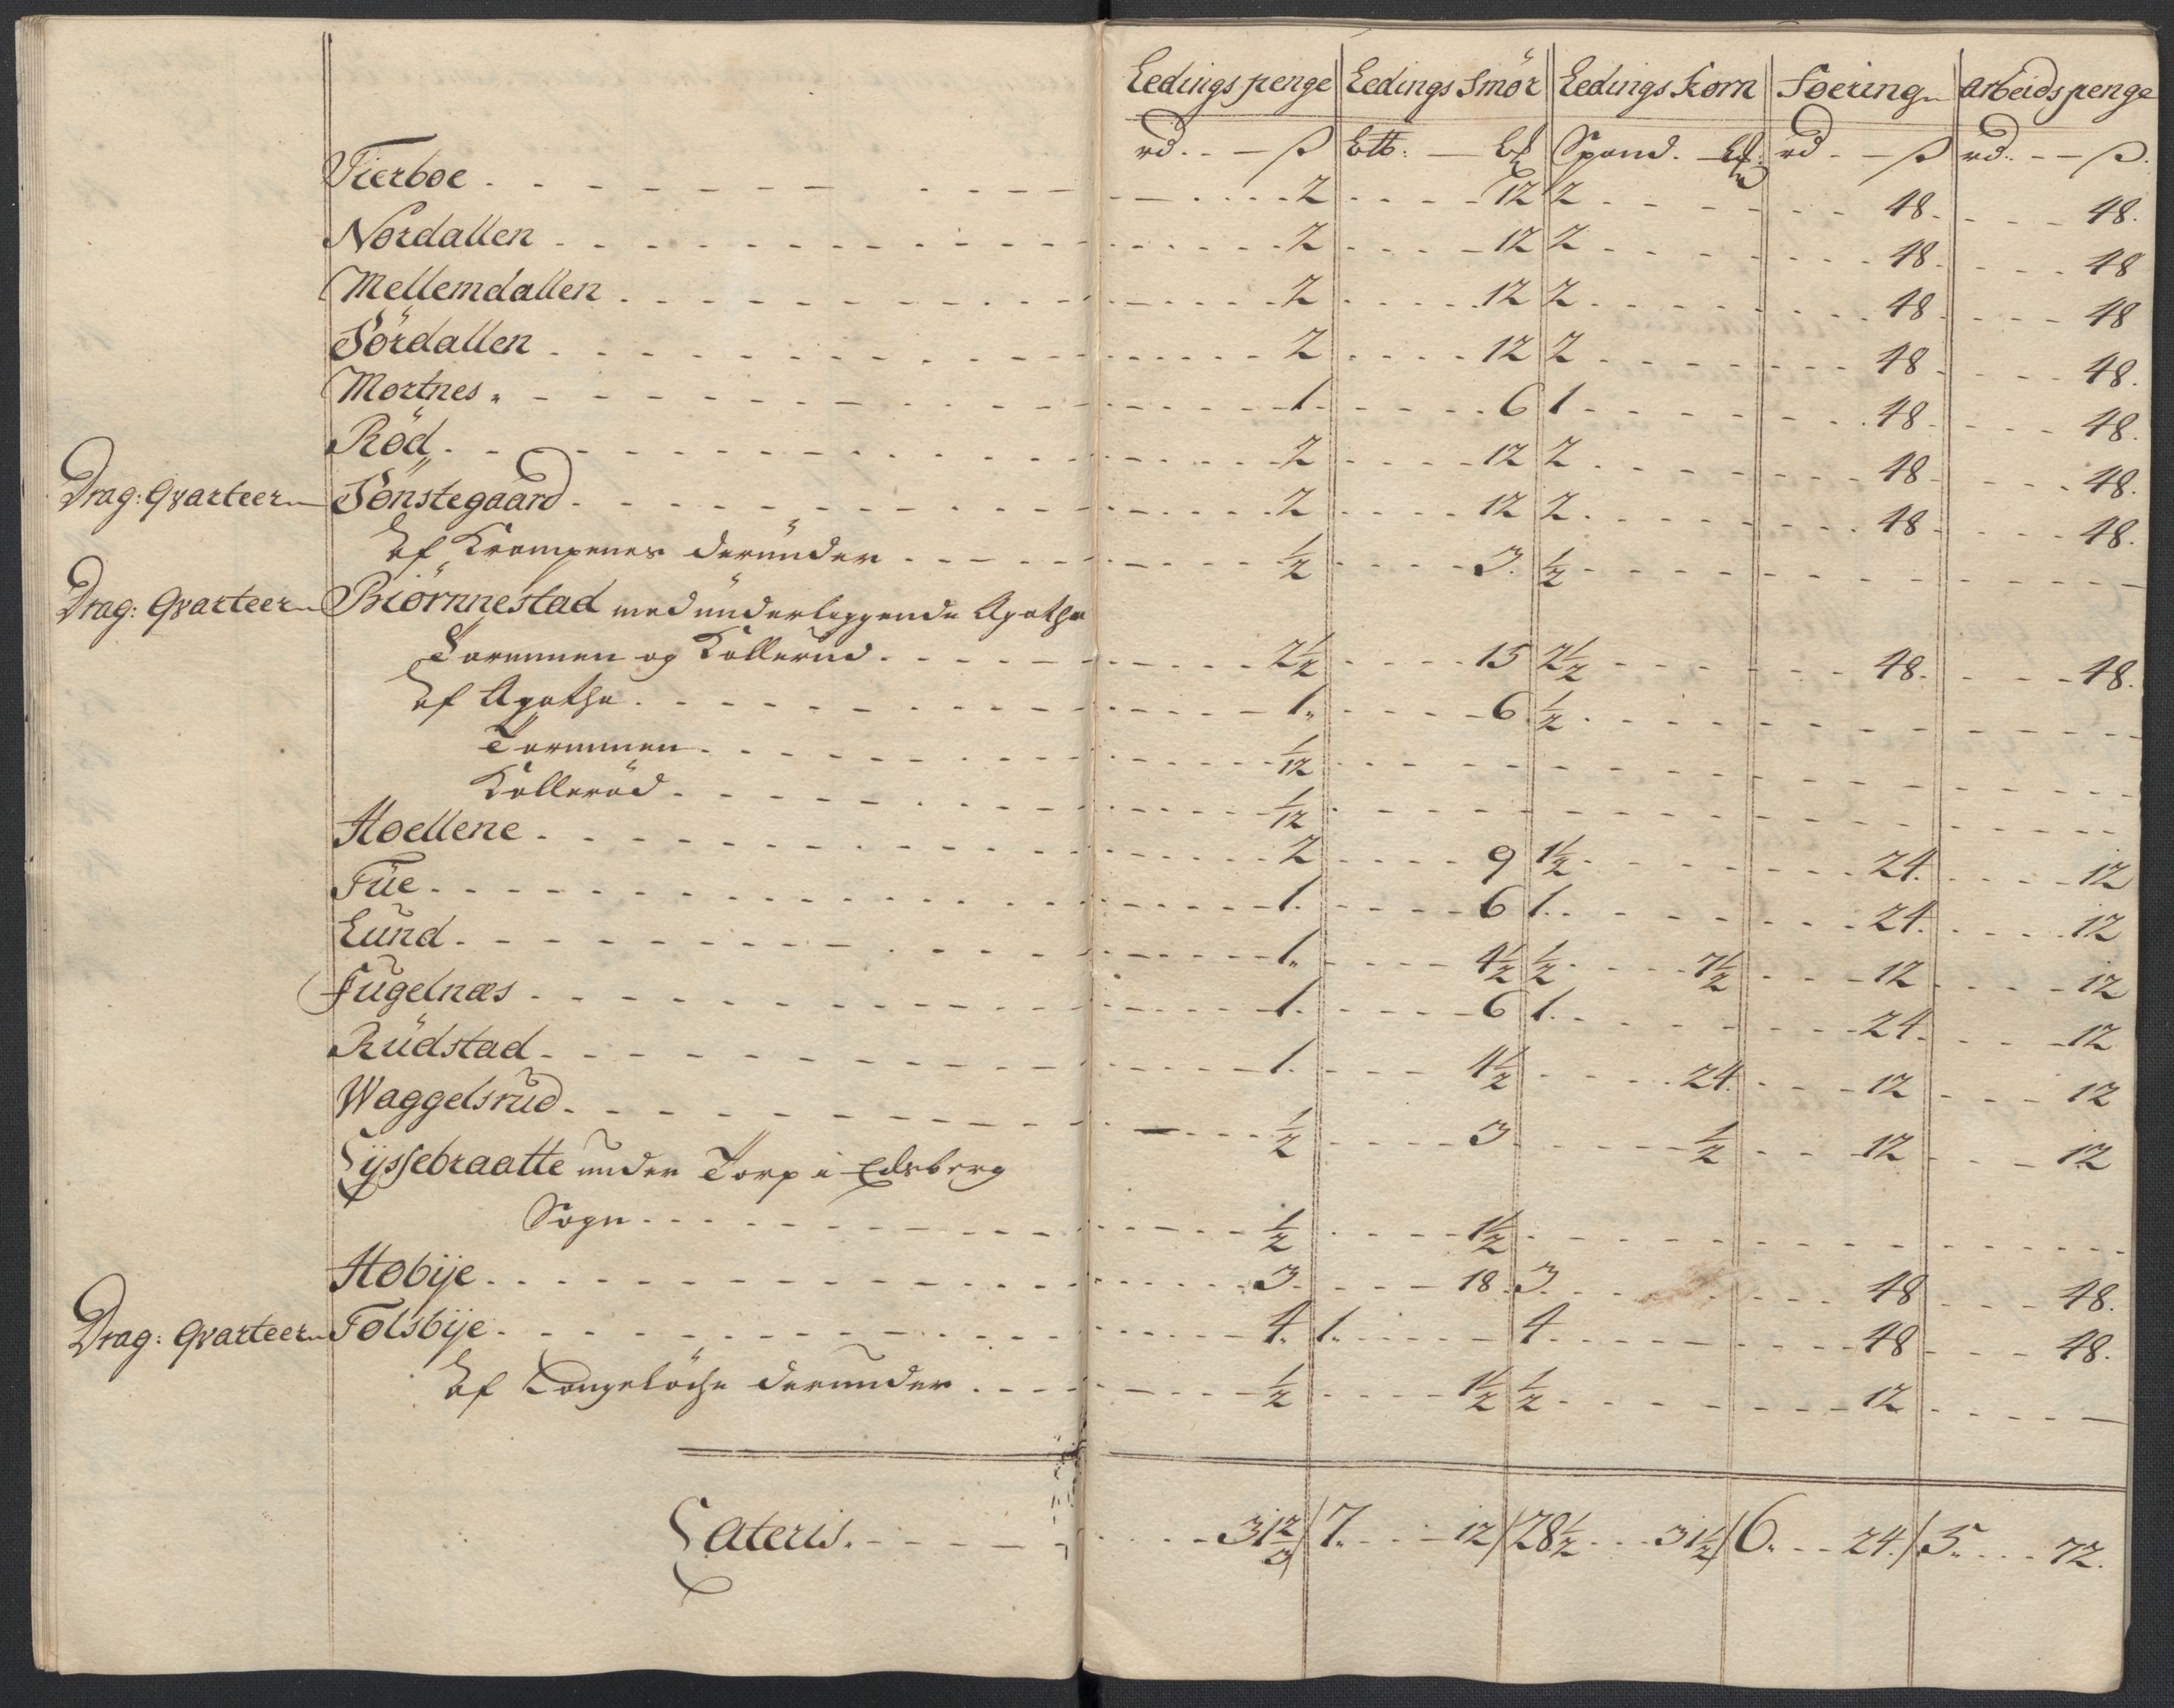 Ledings penge Ledings Smör Ledings Korn Foering arbeids penge
rd. ß Btt: Spand. rd ß rd. ß.
Fierboe 2 12 2 48. 48.
Nordallen 2 12 2 48. 48
Mellemdallen 2 12 2 48 48
Sördallen 2 12 2 48 48.
Mortnes 1. 6 1 48 48.
Röd 2 12 2 48 48.
Drag: Qvarteer Sönstegaard 2 12 2 48 48.
af Krompenes deründer ½ 3. ½
Drag: Qvarteer Biörnnestad med ünderliggende Apothe
Torummen og Kollerud 2½ 15 2½ 48. 48.
af Apothe 1. 6 ½
Torummen 1/12
Kolleröd 1/12
Hoellene 2 9 1½ 24. 12
Füe 1. 6 1. 24. 12
Lund 1. 4½ ½ 7½ 12 12
Fugelnæs 1. 6 1. 24. 12
Rüdstad 1. 4½ 24. 12 12
Waggelsrud ½ 3 ½ 12 12
Lÿssebraatte under Torp i Edsberg
Sogn ½ 1½
Hobÿe 3. 18 3 48 48.
Drag: Qvarteer Folsbÿe 4. 1. 4 48 48.
af Langelöche derunder ½ 1½ ½ 12
Lateris. 31⅔ 7. 12 28½ 31½ 6. 24. 5. 72.